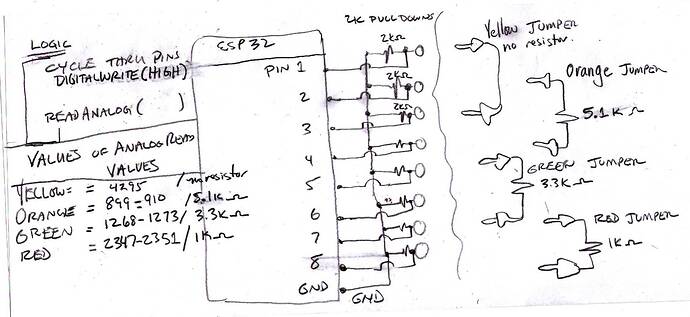 LOGIC
CYCLE THRU PINS
DIGITALWRITE(HIGH)
READANALOG( )
VALUES OF ANALOGREAD
VALUES
YELLOW = 4295 / no resistor
ORANGE = 899-910 / 5.1K Ω
GREEN = 1268-1273 / 3.3K Ω
RED = 2347-2351 / 1K Ω
ESP 32
PIN 1
2
3
4
5
6
7
8
GND
GND
2K PULLDOWNS
2KΩ
2KΩ
2KΩ
Yellow JUMPER
no resistor.
Orange JUMPER
5.1K Ω
GREEN JUMPER
3.3K Ω
RED JUMPER
1K Ω